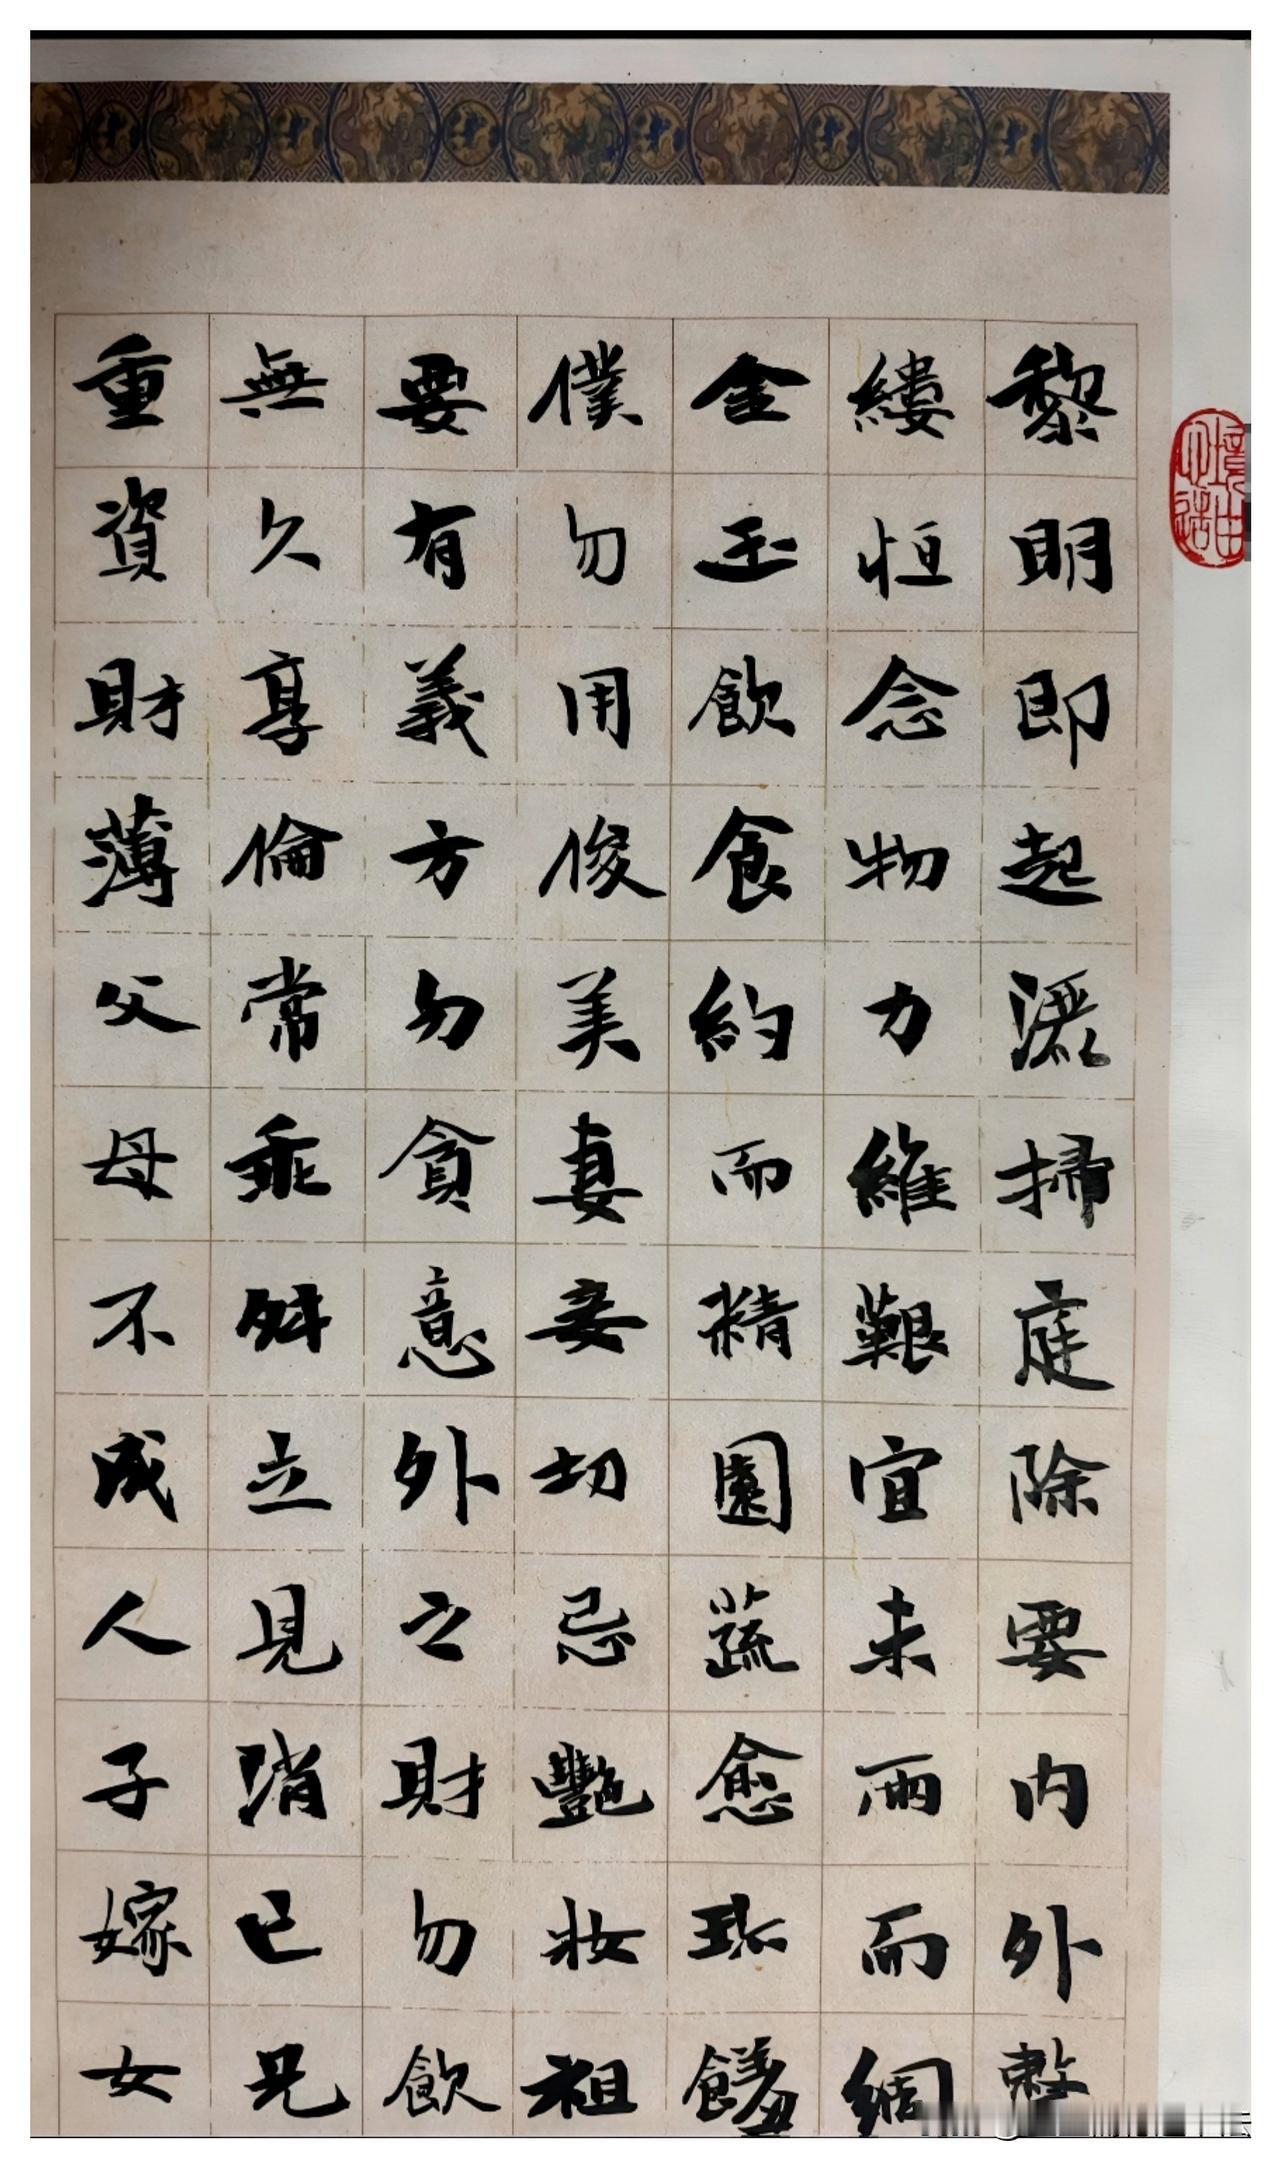 黎明即起灑掃庭除要内外整
縷恒念物力維艱宜未雨而綢
金玉飲食約而精園蔬愈珎饈
僕勿用俊美妻妾切忌艷妝祖
要有義方勿貪意外之財勿飲
無久享倫常乖舛立見消已兄
重資財薄父母不成人子嫁女